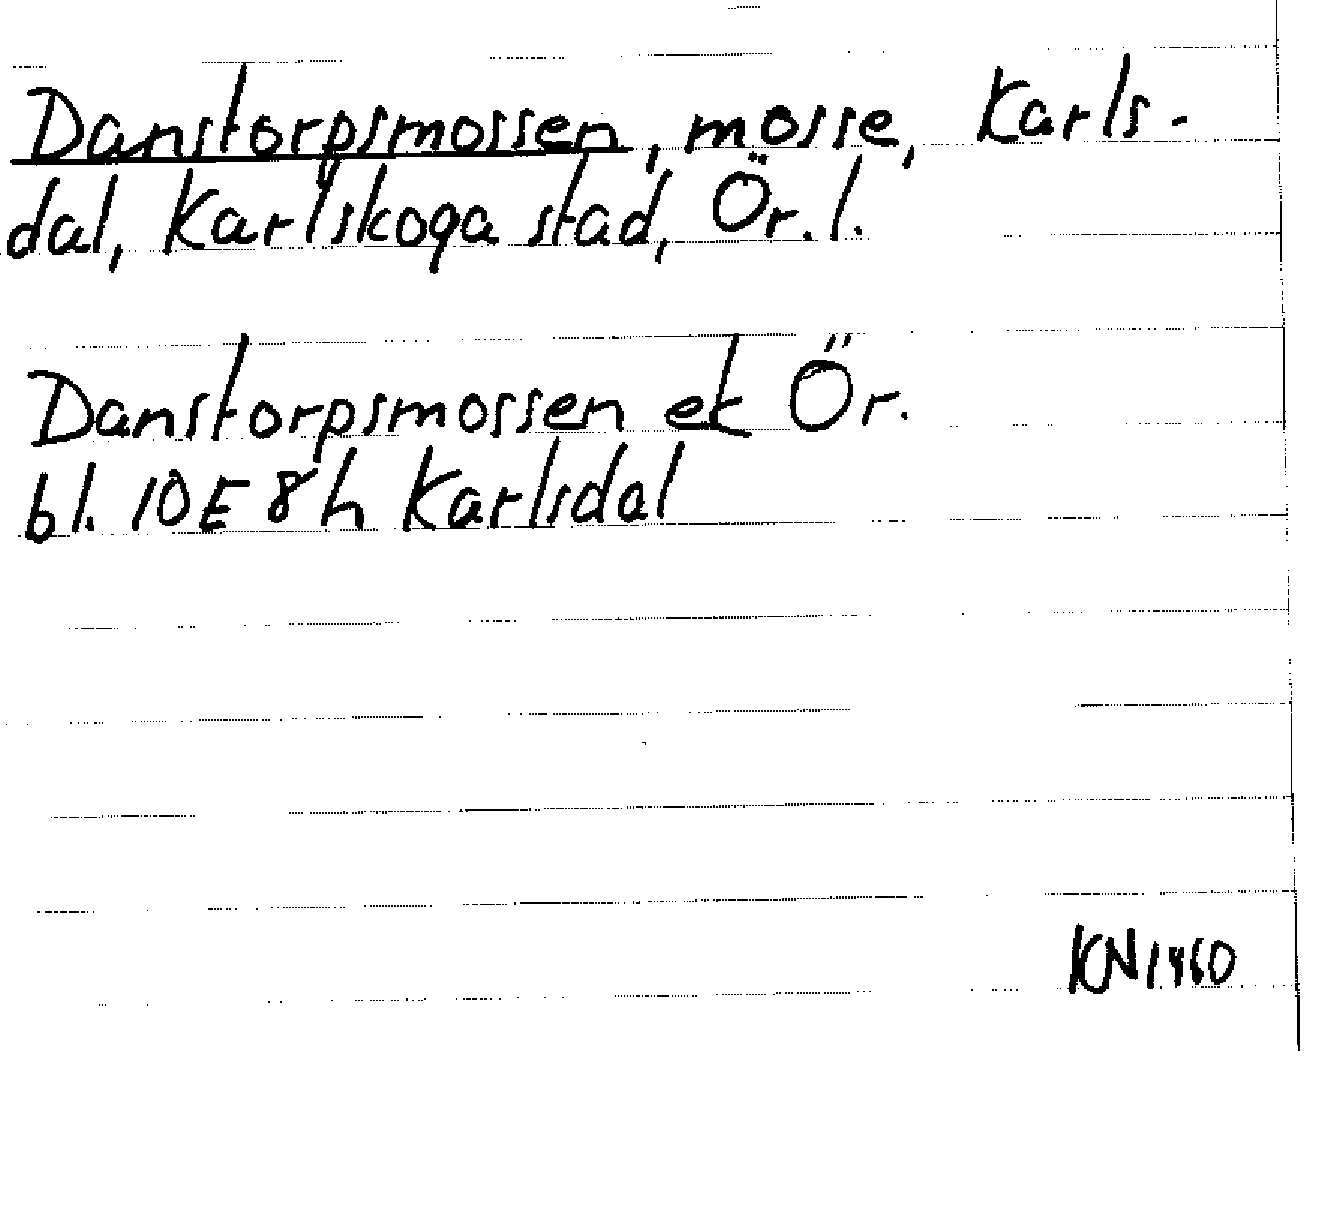 Danstorpsmossen, mosse, Karls-
dal, Karlskoga stad, Ör. l.
Danstorpsmossen ek Ör.
bl. 10E 8h Karlsdal
KN1960